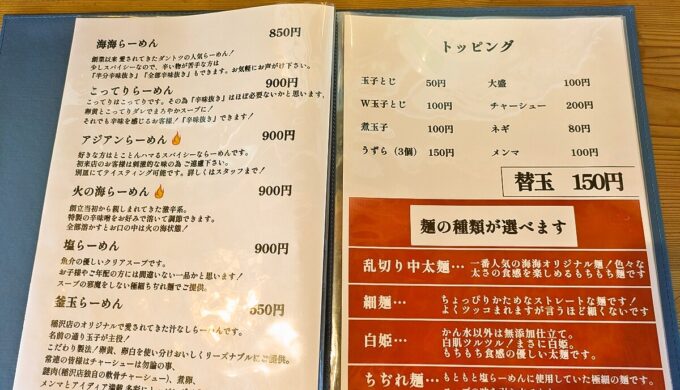 海海らーめん 850円
創業以来 愛されてきたダントツの人気らーめん！
少しスパイシーなので、辛い物が苦手な方は
『半分辛味抜き』『全部辛味抜き』もできます。お気軽にお声がけ下さい。
こってりらーめん 900円
こってりはこってりです。その為『辛味抜き』はほぼ必要ないかと思います、
卵黄とこってりダレでまろやかスープに！
それでも辛味を感じるお客様！『辛味抜き』できます！
アジアンらーめん 900円
好きな方はとことんハマるスパイシーならーめんです。
初来店のお客様は刺激的な味の為 ご遠慮下さい。
別皿にてテイスティング可能です。詳しくはスタッフまで！
火の海らーめん 900円
創立当初から親しまれてきた激辛系。
特製の辛味噌をお好みで溶いて調節できます。
全部溶かすとお口の中は火の海状態！
塩らーめん 900円
魚介の優しいクリアスープです。
お子様やご年配の方には間違いない一品かと思います！
スープの邪魔をしない極細ちぢれ麺でご提供。
釜玉らーめん 550円
稲沢店のオリジナルで愛されてきた汁なしらーめんです。
名前の通り玉子が主役！
こだわり製法！卵黄、卵白を使い分けおいしくリーズナブルにご提供。
常連の皆様はチャーシューは勿論の事、
謎肉(稲沢店独自の軟骨チャーシュー)、煮卵、
トッピング
玉子とじ 50円 大盛 100円
W玉子とじ 100円 チャーシュー 200円
煮玉子 100円 ネギ 80円
うずら（3個） 150円 メンマ 100円
替玉 150円
麺の種類が選べます
乱切り中太麺… 一番人気の海海オリジナル麺！色々な
太さの食感を楽しめるもちもち麺です
細麺… ちょっぴりかためなストレートな麺です！
よくツッコまれますが言うほど細くないです
白姫… かん水以外は無添加仕立て。
白肌ツルツル！まさに白姫。
もちもち食感の優しい太麺です。
ちぢれ麺… もともと塩らーめんに使用していた極細の麺です。